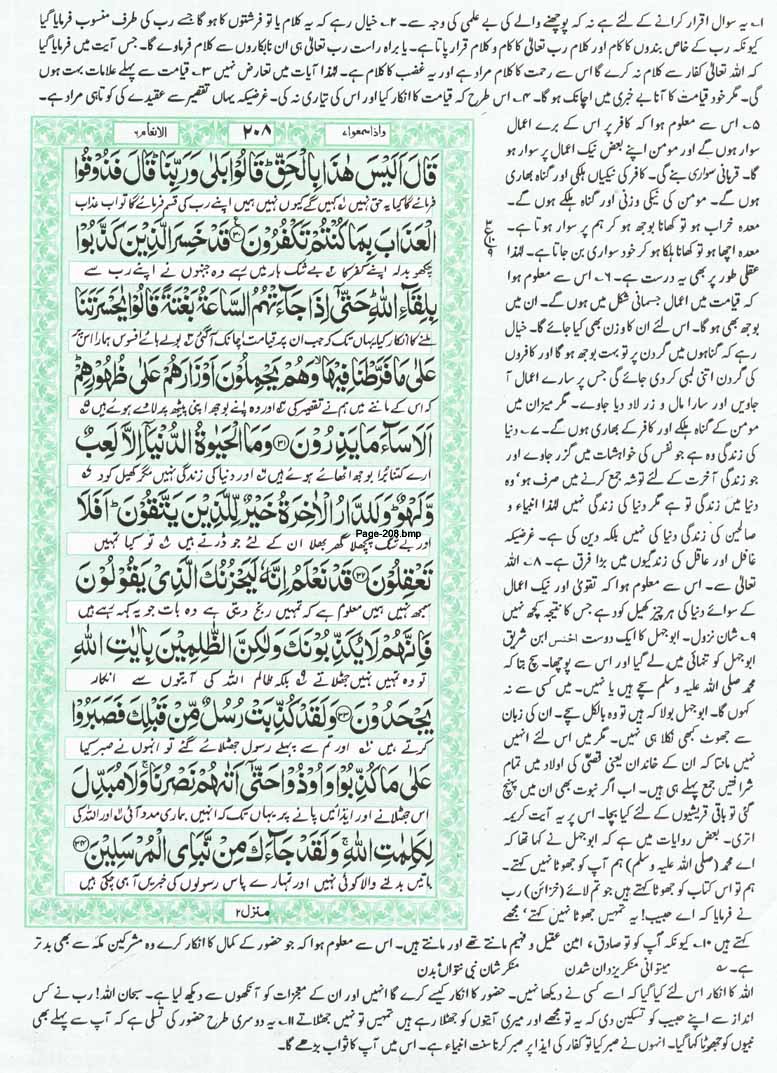 ۱۔ یہ سوال اقرار کرانے کے لئے ہے نہ کہ پوچھنے والے کی بے علمی کی وجہ سے۔ ۲۔ خیال رہے کہ یہ کلام یا تو فرشتوں کا ہو گا جسے رب کی طرف منسوب فرمایا گیا
کیونکہ رب کے خاص بندوں کا کام اور کلام رب تعالیٰ کا کام و کلام قرار پاتا ہے۔ یا براہ راست رب تعالیٰ ہی ان نابکاروں سے کلام فرماوے گا۔ جس آیت میں فرمایا گیا
کہ اللہ تعالیٰ کفار سے کلام نہ کرے گا اس سے رحمت کا کلام مراد ہے اور یہ غضب کا کلام ہے۔ لہٰذا آیات میں تعارض نہیں ۳۔ قیامت سے پہلے علامات بہت ہوں
گی۔ مگر خود قیامت کا آنا بے خبری میں اچانک ہو گا۔ ۴۔ اس طرح کہ قیامت کا انکار کیا اور اس کی تیاری نہ کی۔ غرضیکہ یہاں تقصیر سے عقیدے کی کوتاہی مراد ہے۔
واذا سمعوا۷
۲۰۸
الانعام۶
قَالَ اَلَیْسَ هٰذَا بِالْحَقِّ ؕ قَالُوْا بَلٰی وَ رَبِّنَا ؕ قَالَ فَذُوْقُوا
فرمائے گا کیا یہ حق نہیں کہیں گے کیوں نہیں ہمیں اپنے رب کی قسم فرمائے گا تو اب عذاب
الْعَذَابَ بِمَا كُنْتُمْ تَكْفُرُوْنَ ﴿۳۰﴾ قَدْ خَسِرَ الَّذِیْنَ كَذَّبُوْا
چکھو بدلہ اپنے کفر کا بے شک ہار میں رہے وہ جنہوں نے اپنے رب سے
بِلِقَآءِ اللّٰهِ ؕ حَتّٰۤی اِذَا جَآءَتْهُمُ السَّاعَةُ بَغْتَةً قَالُوْا یٰحَسْرَتَنَا
ملنے کا انکار کیا یہاں تک کہ جب ان پر قیامت اچانک آگئی بولے ہائے افسوس ہمارا اس پر
عَلٰی مَا فَرَّطْنَا فِیْهَا ۙ وَ هُمْ یَحْمِلُوْنَ اَوْزَارَهُمْ عَلٰی ظُهُوْرِهِمْ ؕ
کہ اس کے ماننے میں ہم نے تقصیر کی اور وہ اپنے بوجھ اپنی پیٹھ پر لادے ہوئے ہیں
اَلَا سَآءَ مَا یَزِرُوْنَ ﴿۳۱﴾ وَ مَا الْحَیٰوةُ الدُّنْیَاۤ اِلَّا لَعِبٌ
ارے کتنا برا بوجھ اٹھائے ہوئے ہیں اور دنیا کی زندگی نہیں مگر کھیل کود
وَّ لَهْوٌ ؕ وَ لَلدَّارُ الْاٰخِرَةُ خَیْرٌ لِّلَّذِیْنَ یَتَّقُوْنَ ؕ اَفَلَا
Page-208.bmp
اور بے شک پچھلا گھر بھلا ان کے لئے جو ڈرتے ہیں تو کیا تمہیں
تَعْقِلُوْنَ ﴿۳۲﴾ قَدْ نَعْلَمُ اِنَّهٗ لَیَحْزُنُكَ الَّذِیْ یَقُوْلُوْنَ
سمجھ نہیں ہمیں معلوم ہے کہ تمہیں رنج دیتی ہے وہ بات جو یہ کہہ رہے ہیں
فَاِنَّهُمْ لَا یُكَذِّبُوْنَكَ وَ لٰكِنَّ الظّٰلِمِیْنَ بِاٰیٰتِ اللّٰهِ
تو وہ تمہیں نہیں جھٹلاتے بلکہ ظالم اللہ کی آیتوں سے انکار
یَجْحَدُوْنَ ﴿۳۳﴾ وَ لَقَدْ كُذِّبَتْ رُسُلٌ مِّنْ قَبْلِكَ فَصَبَرُوْا
کرتے ہیں اور تم سے پہلے رسول جھٹلائے گئے تو انہوں نے صبر کیا
عَلٰی مَا كُذِّبُوْا وَ اُوْذُوْا حَتّٰۤی اَتٰىهُمْ نَصْرُنَا ۚ وَ لَا مُبَدِّلَ
اس جھٹلانے اور ایذائیں پانے پر یہاں تک کہ انہیں ہماری مدد آئی اور اللہ کی
لِكَلِمٰتِ اللّٰهِ ۚ وَ لَقَدْ جَآءَكَ مِنْ نَّبَاِی الْمُرْسَلِیْنَ ﴿۳۴﴾
باتیں بدلنے والا کوئی نہیں اور تمہارے پاس رسولوں کی خبریں آہی چکی ہیں
منزل۲
۵۔ اس سے معلوم ہوا کہ کافر پر اس کے برے اعمال
سوار ہوں گے اور مومن اپنے بعض نیک اعمال پر سوار ہو
گا۔ قربانی سواری بنے گی۔ کافر کی نیکیاں ہلکی اور گناہ بھاری
ہوں گے۔ مومن کی نیکی وزنی اور گناہ ہلکے ہوں گے۔
معدہ خراب ہو تو کھانا بوجھ ہو کر ہم پر سوار ہوتا ہے۔
معدہ اچھا ہو تو کھانا ہلکا ہو کر خود سواری بن جاتا ہے۔ لہٰذا
عقلی طور پر بھی یہ درست ہے۔ ۶۔ اس سے معلوم ہوا
کہ قیامت میں اعمال جسمانی شکل میں ہوں گے۔ ان میں
بوجھ بھی ہو گا۔ اس لئے ان کا وزن بھی کیا جائے گا۔ خیال
رہے کہ گناہوں میں گردن پر تو بہت بوجھ ہو گا اور کافروں
کی گردن اتنی لمبی کر دی جائے گی جس پر سارے اعمال آ
جاویں اور سارا مال و زر لاد دیا جاوے۔ مگر میزان میں
مومن کے گناہ ہلکے اور کافر کے بھاری ہوں گے۔ ۷۔ دنیا
کی زندگی وہ ہے جو نفس کی خواہشات میں گزر جاوے اور
جو زندگی آخرت کے لئے توشہ جمع کرنے میں صرف ہو، وہ
دنیا میں زندگی تو ہے مگر دنیا کی زندگی نہیں لہٰذا انبیاء و
صالحین کی زندگی دنیا کی نہیں بلکہ دین کی ہے۔ غرضیکہ
غافل اور عاقل کی زندگیوں میں بڑا فرق ہے۔ ۸۔ اللہ
تعالیٰ سے۔ اس سے معلوم ہوا کہ تقویٰ اور نیک اعمال
کے سوائے دنیا کی ہر چیز کھیل کود ہے جس کا نتیجہ کچھ نہیں
۹۔ شان نزول۔ ابو جہل کا ایک دوست اخنس ابن شریق
ابو جہل کو تنہائی میں لے گیا اور اس سے پوچھا۔ سچ بتا کہ
محمد صلی اللہ علیہ وسلم سچے ہیں یا نہیں۔ میں کسی سے نہ
کہوں گا۔ ابو جہل بولا کہ ہیں تو وہ بالکل سچے۔ ان کی زبان
سے جھوٹ کبھی نکلا ہی نہیں۔ مگر میں اس لئے انہیں
نہیں مانتا کہ ان کے خاندان یعنی قصیٰ کی اولاد میں تمام
شرافتیں جمع پہلے ہی ہیں۔ اب اگر نبوت بھی ان میں پہنچ
گئی تو باقی قریشیوں کے لئے کیا بچا۔ اس پر یہ آیت کریمہ
اتری۔ بعض روایات میں ہے کہ ابو جہل نے کہا تھا کہ
اے محمد (صلی اللہ علیہ وسلم) ہم آپ کو جھوٹا نہیں کہتے۔
ہم تو اس کتاب کو جھوٹا کہتے ہیں جو تم لائے (خزائن) رب
نے فرمایا کہ اے حبیب! یہ تمہیں جھوٹا نہیں کہتے، مجھے
کہتے ہیں ۱۰۔ کیونکہ آپ کو تو صادق، امین عقیل و فہیم مانتے تھے اور مانتے ہیں۔ اس سے معلوم ہوا کہ جو حضور کے کمال کا انکار کرے وہ مشرکین مکہ سے بھی بدتر
ہے۔ میتوانی منکر یزداں شدن منکر شان نبی نتواں بدن
اللہ کا انکار اس لئے کیا گیا کہ اسے کسی نے دیکھا نہیں۔ حضور کا انکار کیسے کرے گا انہیں اور ان کے معجزات کو آنکھوں سے دیکھ لیا ہے۔ سبحان اللہ! رب نے کس
انداز سے اپنے حبیب کو تسکین دی کہ یہ تو مجھے اور میری آیتوں کو جھٹلا رہے ہیں تمہیں تو نہیں جھٹلاتے ۱۱۔ یہ دوسری طرح حضور کی تسلی ہے کہ آپ سے پہلے بھی
نبیوں کو جھوٹا کہا گیا۔ انہوں نے صبر کیا تو کفار کی ایذا پر صبر کرنا سنت انبیاء ہے۔ اس میں آپ کا ثواب بڑھے گا۔